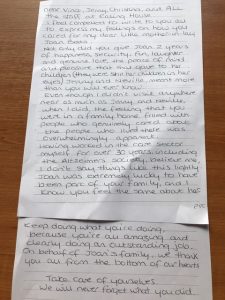 Dear Nina, Jenny, Christina, and ALL
the staff at Ealing House
I feel compelled to write to you all
to express my feelings on how you
cared for my dear late mother-in-law
Joan
Not only did you give Joan 2 years
of happiness, security, fun, laughter
and genuine love, the peace of mind
and pleasure that this gave to her
children (they were still her children in her
eyes) Jenny and Neville, meant more
than you will ever know.
Even though I didn't visit anywhere
near as much as Jenny, and Neville,
when I did, the feeling that you
were in a family home, filled with
people who genuinely cared about
the people who lived there was
overwhelmingly apparent.
Having worked in the care sector
myself for over 30 years including
the Alzheimer's society, believe me,
I don't say things like this lightly
Joan was extremely lucky to have
been part of your family, and I
know you feel the same about her
Keep doing what you're doing,
because you're all amazing and
clearly doing an outstanding job.
On behalf of Joan's family, we thank
you all from the bottom of our hearts
Take care of yourselves
We will never forget what you did.